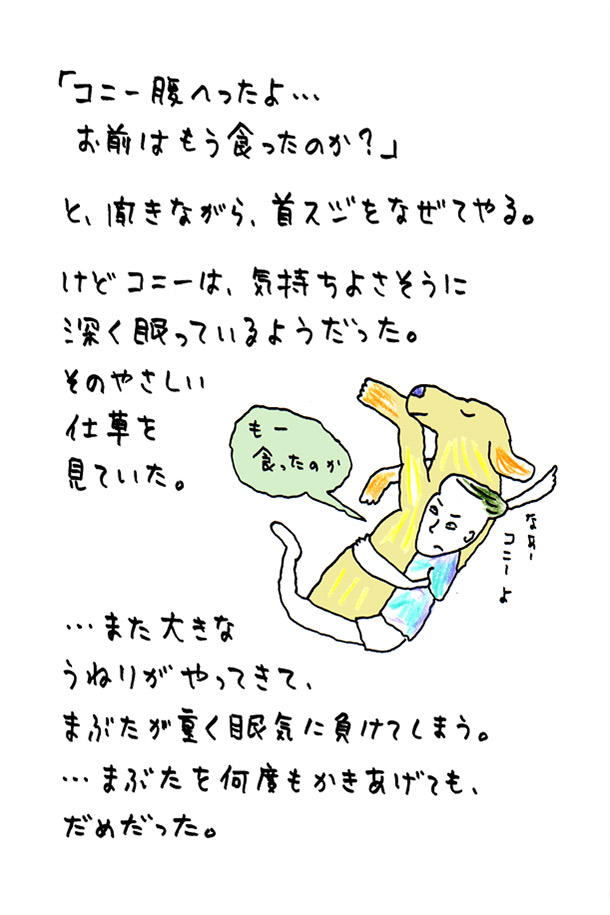 「コニー腹へったよ…
お前はもう食ったのか？」
と、聞きながら、首スジをなぜてやる。
けどコニーは、気持ちよさそうに
深く眠っているようだった。
そのやさしい
仕草を
見ていた。
もー
食ったのか
なぁー
コニーよ
…また大きな
うねりがやってきて、
まぶたが重く眠気に負けてしまう。
…まぶたを何度もかきあげても、
だめだった。